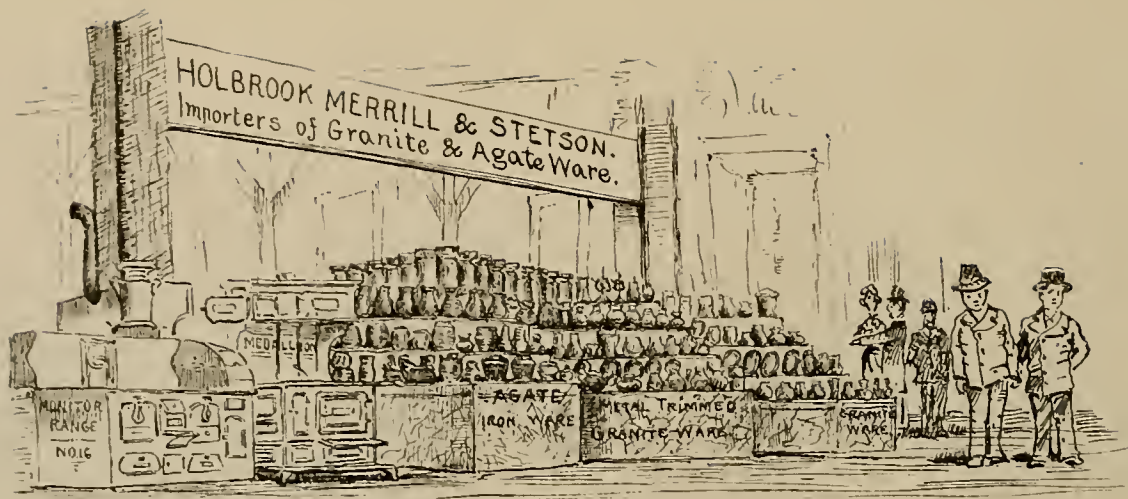 HOLBROOK MERRILL & STETSON.
Importers of Granite & Agate Ware.
MEDALLION
MONITOR
RANGE
NO.16
AGATE
IRON WARE
METAL TRIMMED
GRANITE WARE
GRANITE
WARE